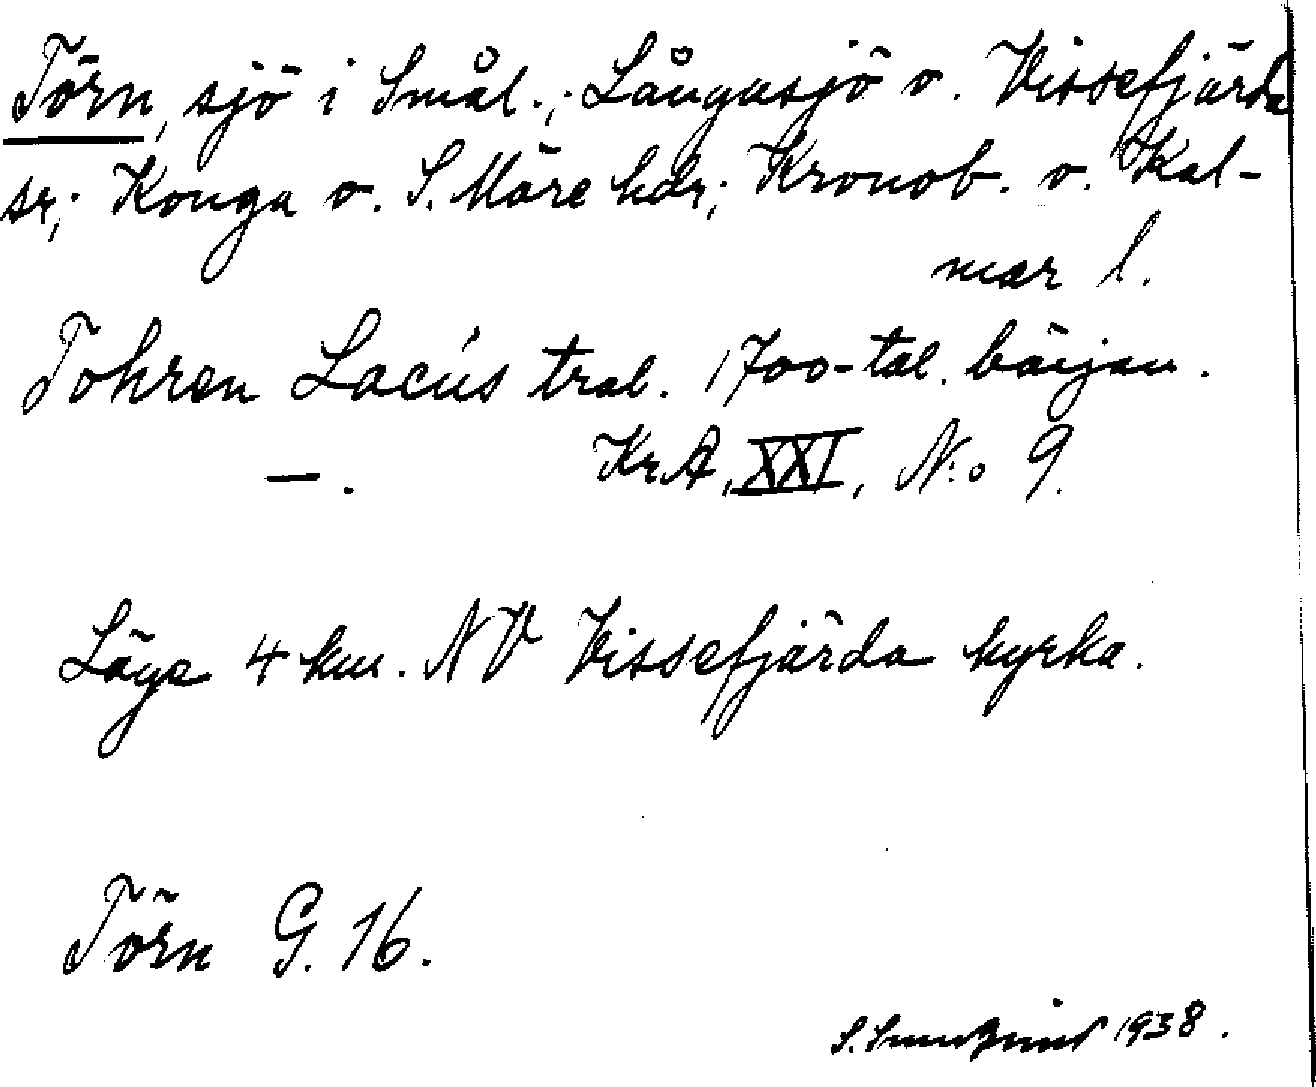 Törn, sjö i Smål.; Långasjö o. Vissefjärda
sr; Konga o. S. Möre hdr; Kronob. o. Kal-
mar l.
Tohren Lacus tral. 1700-tal. börjam.
—. KrA, XXI, N:o 9.
Läge 4 km. NV Vissefjärda kyrka.
Törn G. 16.
S. 1938.